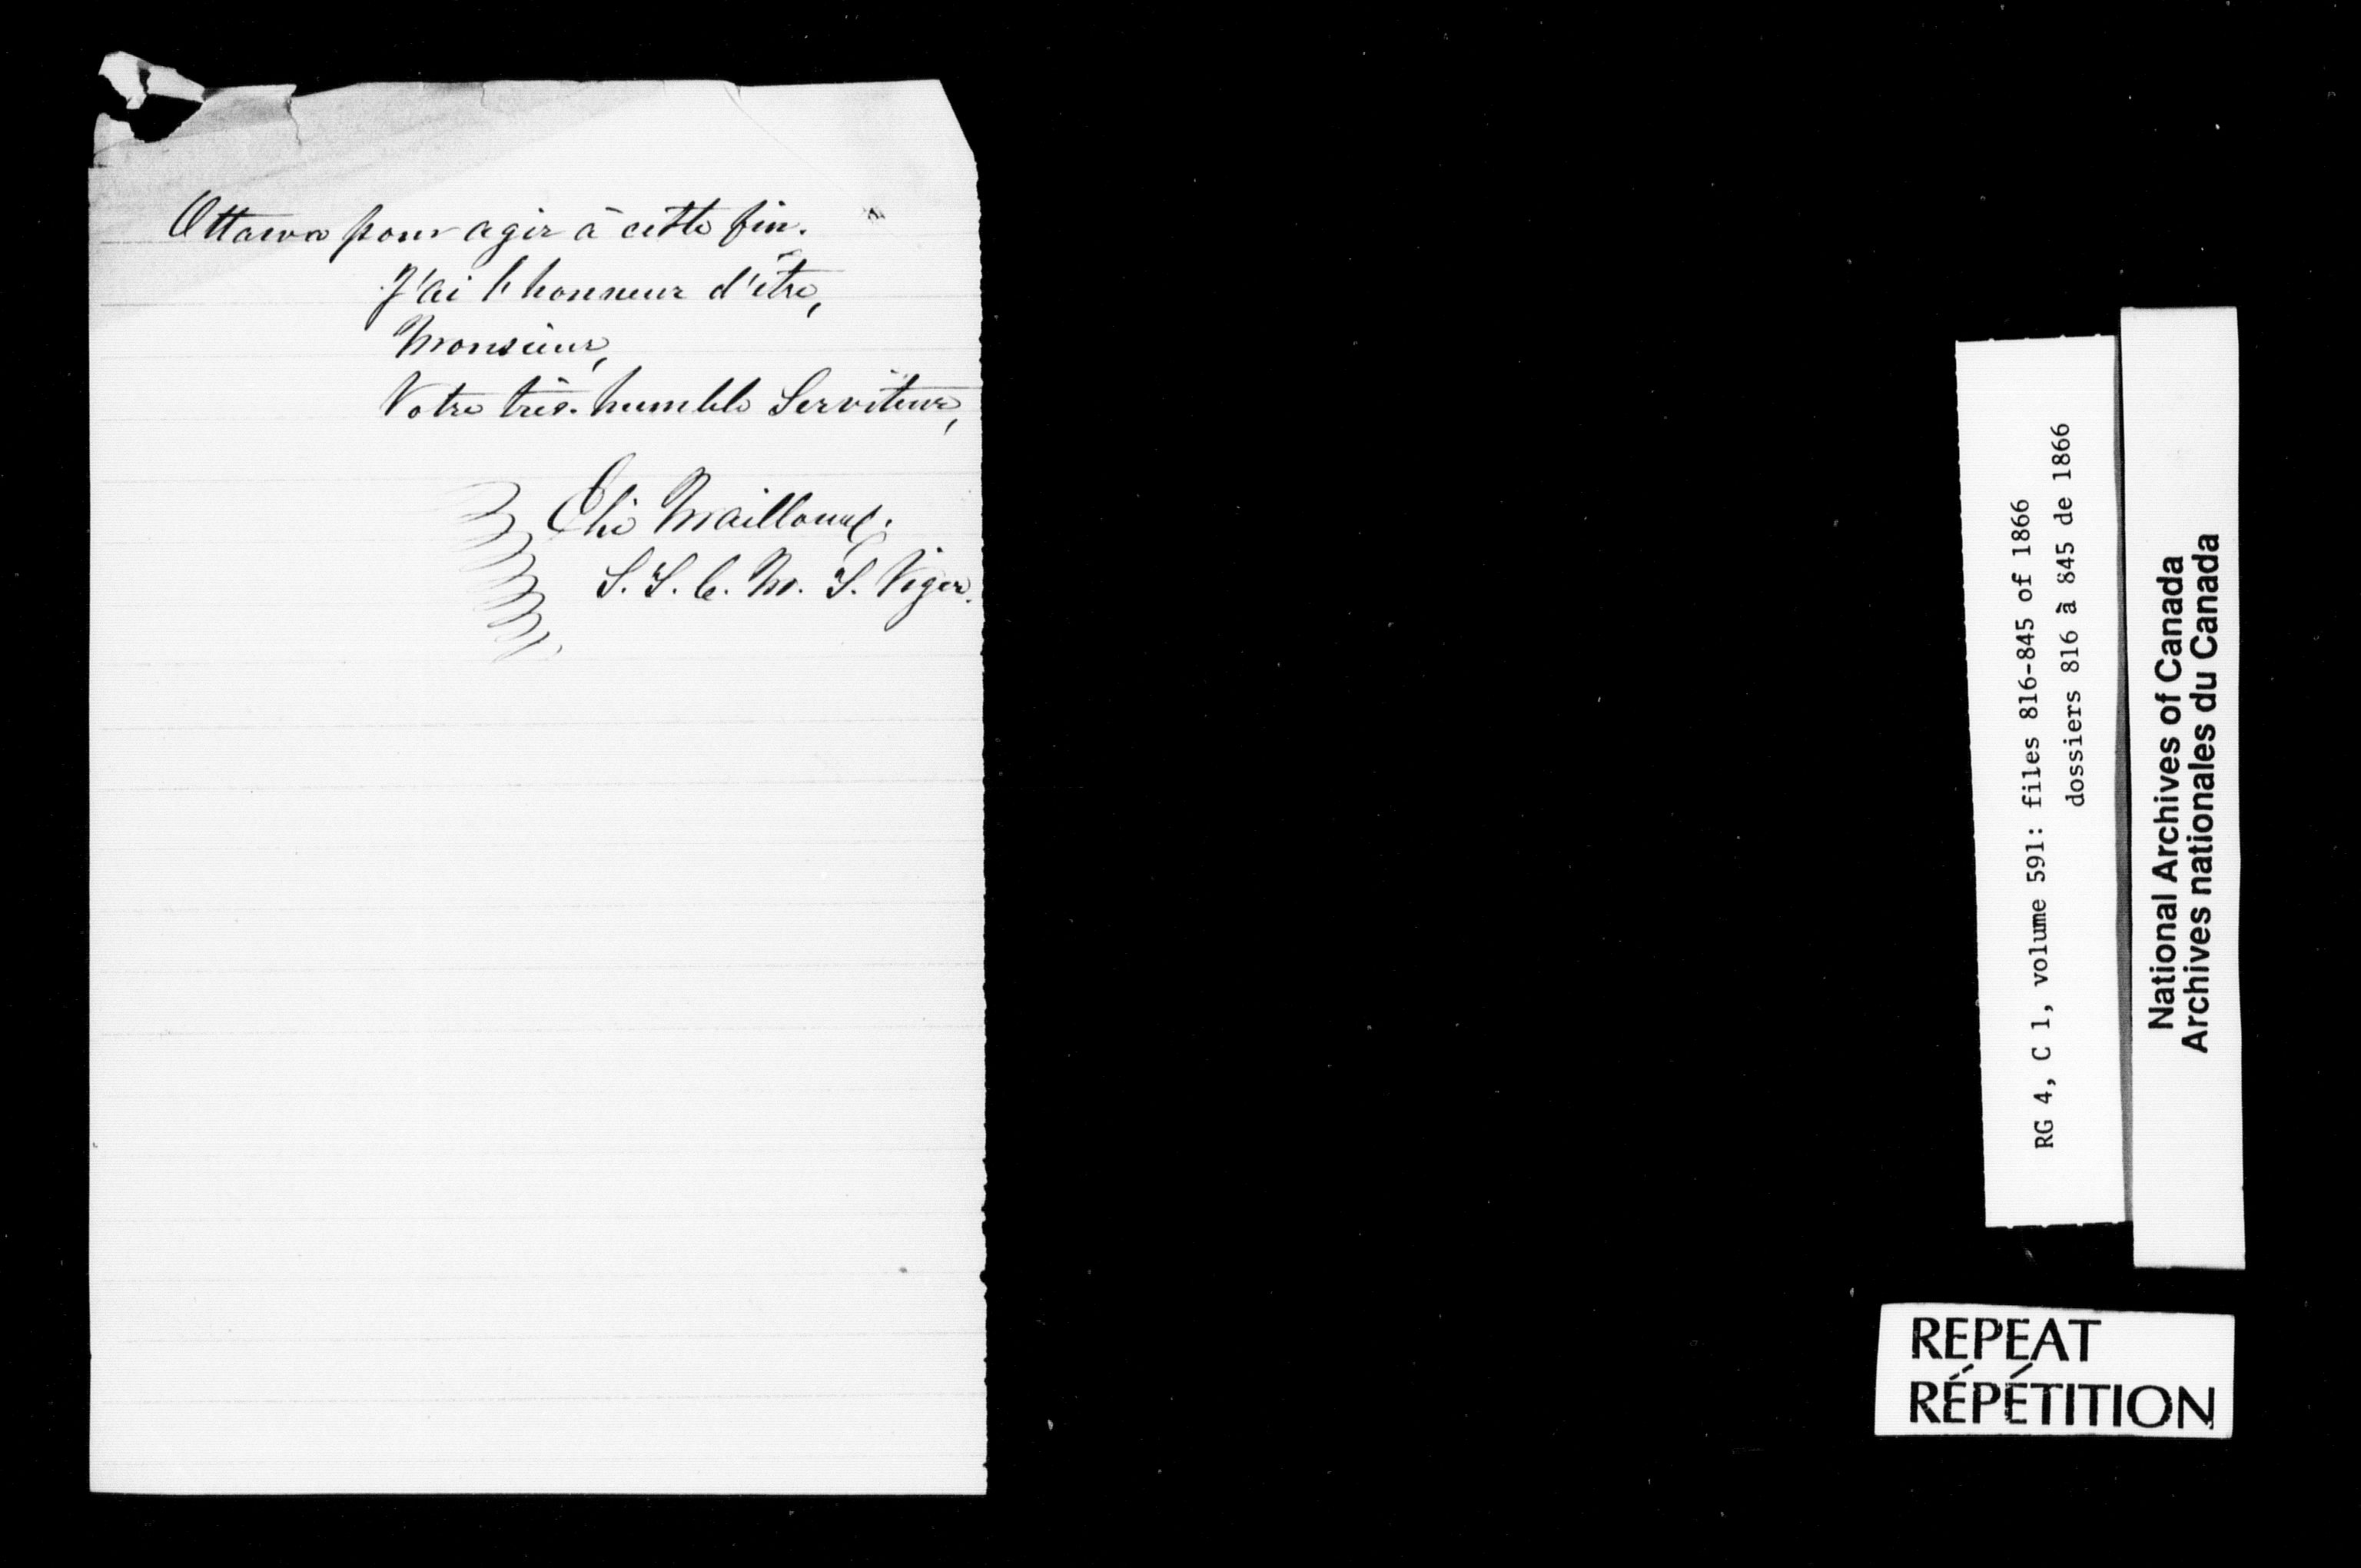 Ottawa pour agir à cette fin.
J'ai l'honneur d'être,
Monsieur,
Votre très-humble Serviteur,
Elie Mailloux.
S. T. C. M. S. Viger.
RG 4, C 1, volume 591: files 816-845 of 1866
dossiers 816 à 845 de 1866
National Archives of Canada
Archives nationales du Canada
REPEAT
RÉPÉTITION